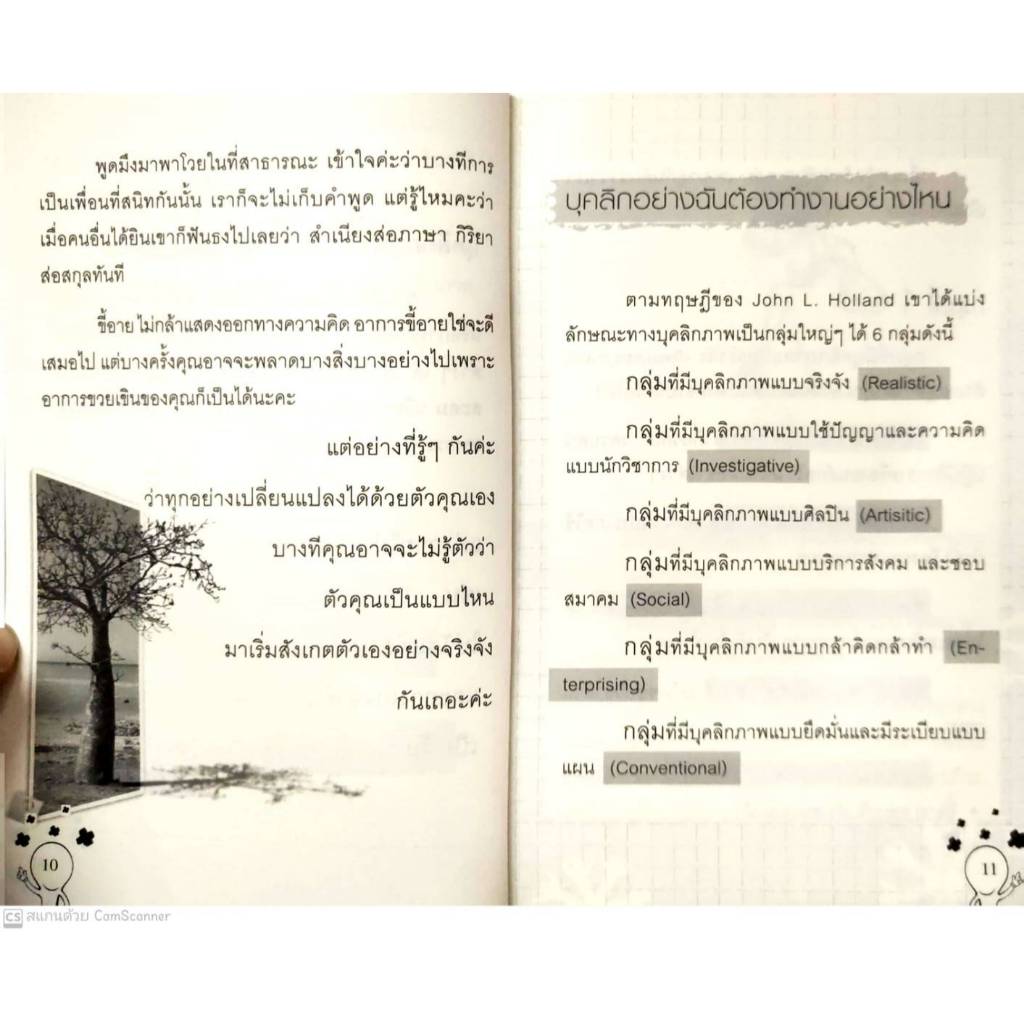 พูดมึงมาพาโวยในที่สาธารณะ เข้าใจค่ะว่าบางทีการ
เป็นเพื่อนที่สนิทกันนั้น เราก็จะไม่เก็บคำพูด แต่รู้ไหมคะว่า
เมื่อคนอื่นได้ยินเขาก็ฟันธงไปเลยว่า สำเนียงส่อภาษา กิริยา
ส่อสกุลทันที
ขี้อาย ไม่กล้าแสดงออกทางความคิด อาการขี้อายใช่จะดี
เสมอไป แต่บางครั้งคุณอาจจะพลาดบางสิ่งบางอย่างไปเพราะ
อาการขวยเขินของคุณก็เป็นได้นะคะ
แต่อย่างที่รู้ๆ กันค่ะ
ว่าทุกอย่างเปลี่ยนแปลงได้ด้วยตัวคุณเอง
บางทีคุณอาจจะไม่รู้ตัวว่า
ตัวคุณเป็นแบบไหน
มาเริ่มสังเกตตัวเองอย่างจริงจัง
กันเถอะค่ะ
10
บุคลิกอย่างฉันต้องทำงานอย่างไหน
ตามทฤษฎีของ John L. Holland เขาได้แบ่ง
ลักษณะทางบุคลิกภาพเป็นกลุ่มใหญ่ๆ ได้ 6 กลุ่มดังนี้
กลุ่มที่มีบุคลิกภาพแบบจริงจัง (Realistic)
กลุ่มที่มีบุคลิกภาพแบบใช้ปัญญาและความคิด
แบบนักวิชาการ (Investigative)
กลุ่มที่มีบุคลิกภาพแบบศิลปิน (Artisitic)
กลุ่มที่มีบุคลิกภาพแบบบริการสังคม และชอบ
สมาคม (Social)
กลุ่มที่มีบุคลิกภาพแบบกล้าคิดกล้าทำ (En-
terprising)
กลุ่มที่มีบุคลิกภาพแบบยึดมั่นและมีระเบียบแบบ
แผน (Conventional)
11
CS สแกนด้วย CamScanner